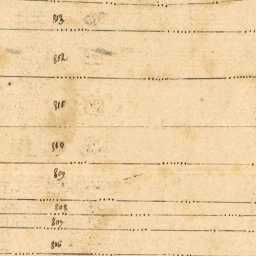 813
812
811
810
809
808
807
806